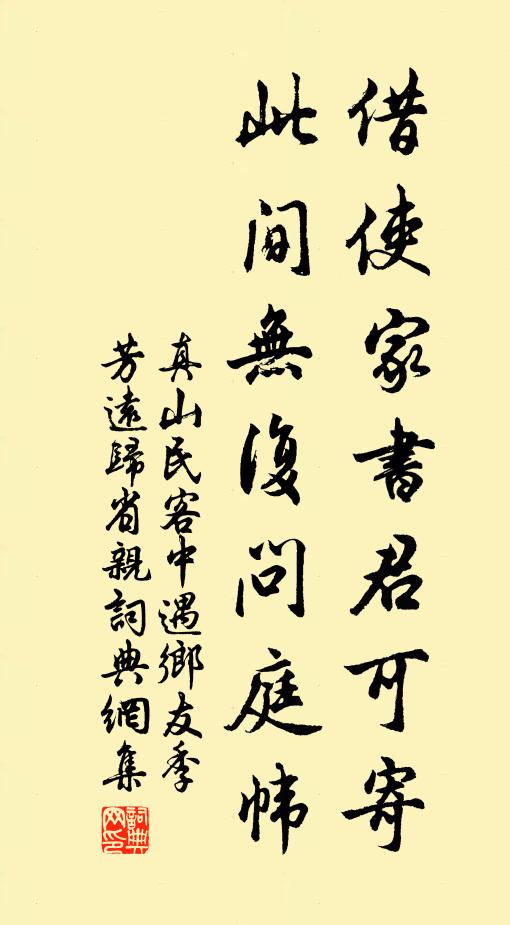 借使家書君可寄
此間無復問庭幃
真山民客中遇鄉友季
芳遠歸省親詞典網集
詞典
网印